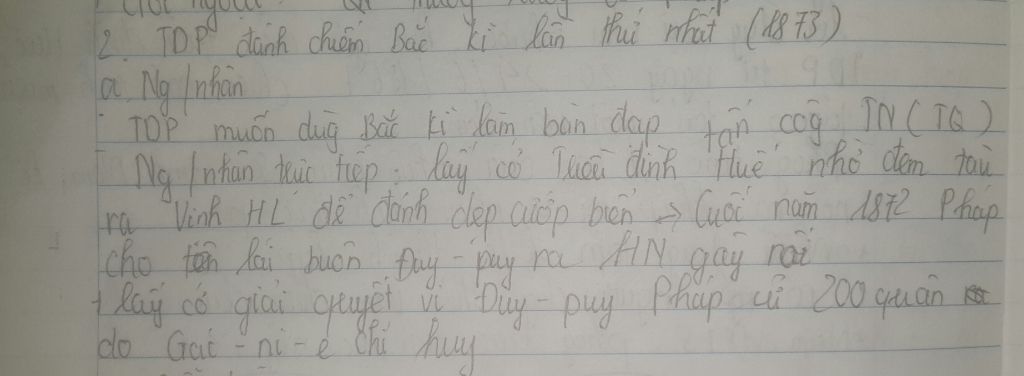 2. TDP đánh chiếm Bắc kì lần thứ nhất (1873)
a. Ng/nhân
- TDP muốn dùg Bắc kì làm bàn đạp tấn côg TN (TQ)
- Ng/nhân trực tiếp: lấy cớ Triều đình Huế nhờ đem tàu
ra Vịnh HL để đánh dẹp cướp biển → Cuối năm 1872 Pháp
cho tên lái buôn Đuy-puy ra HN gây rối
+ lấy cớ giải quyết vụ Đuy-puy Pháp cử 200 quân
do Gác-ni-ê chỉ huy